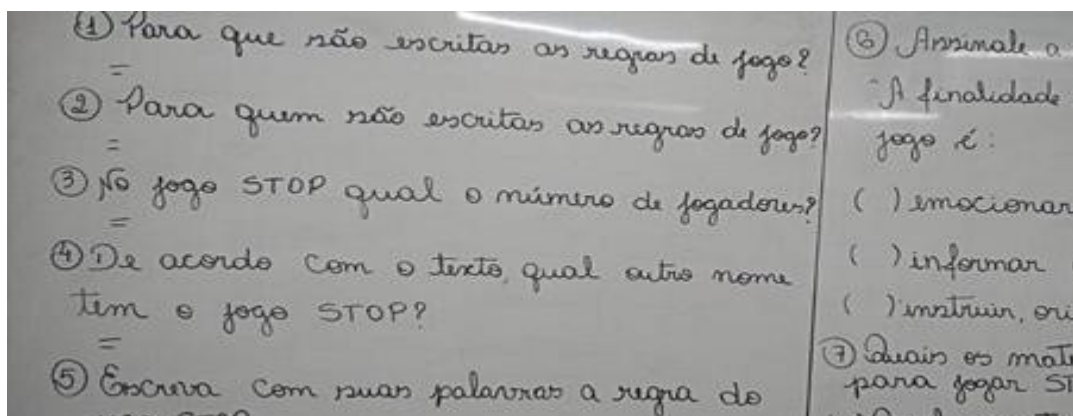 ① Para que são escritas as regras de jogo?
=
② Para quem são escritas as regras de jogo?
=
③ No jogo STOP qual o número de jogadores?
=
④ De acordo com o texto, qual outro nome
tem o jogo STOP?
=
⑤ Escreva com suas palavras a regra do
⑥ Assinale a
"A finalidade
jogo é:
( ) emocionar
( ) informar
( ) instruir, ori
⑦ Quais os mat
para jogar ST